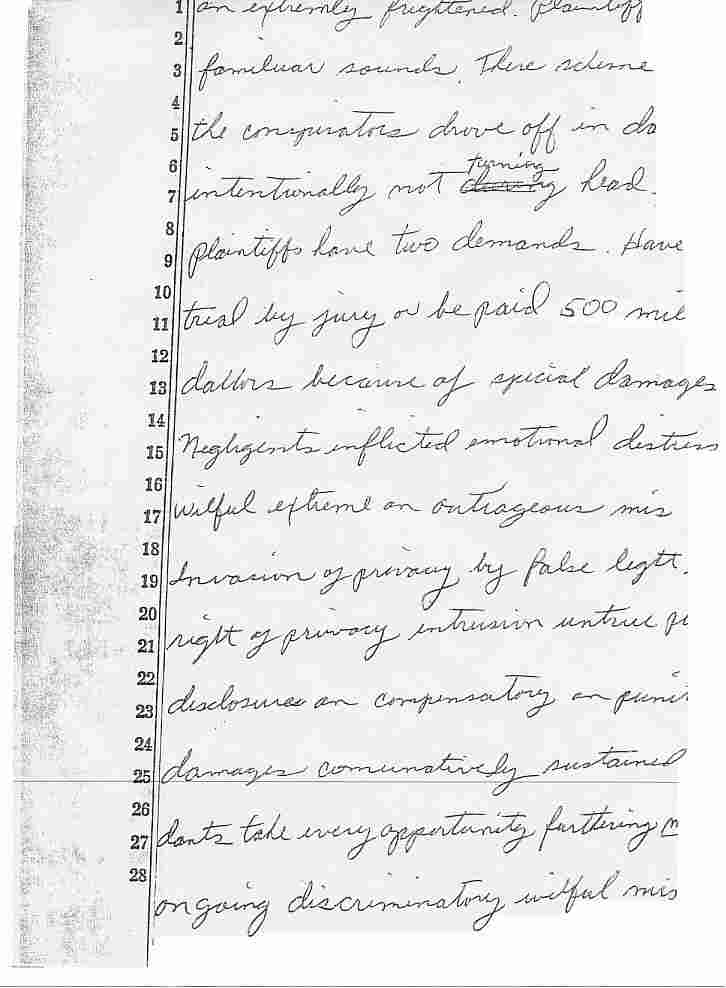 1 an extremly frightened. Plaintiff
2
3 familuar sounds. There scheme
4
5 the conspirators drove off in da
6 turning
7 intentionally not head.
8
9 plaintiffs have two demands. Have
10
11 trial by jury or be paid 500 mil
12
13 dallors because of special damages
14
15 Negligents inflicted emotional distress
16
17 wilful extreme an outrageous mis
18
19 Invasion of privacy by false leght.
20
21 right of privacy intrusion untrue pu
22
23 disclosures an compensatory an punit
24
25 damages comunatively sustained
26
27 dants take every opportunity furthering
28
ongoing discriminatory wilful mis